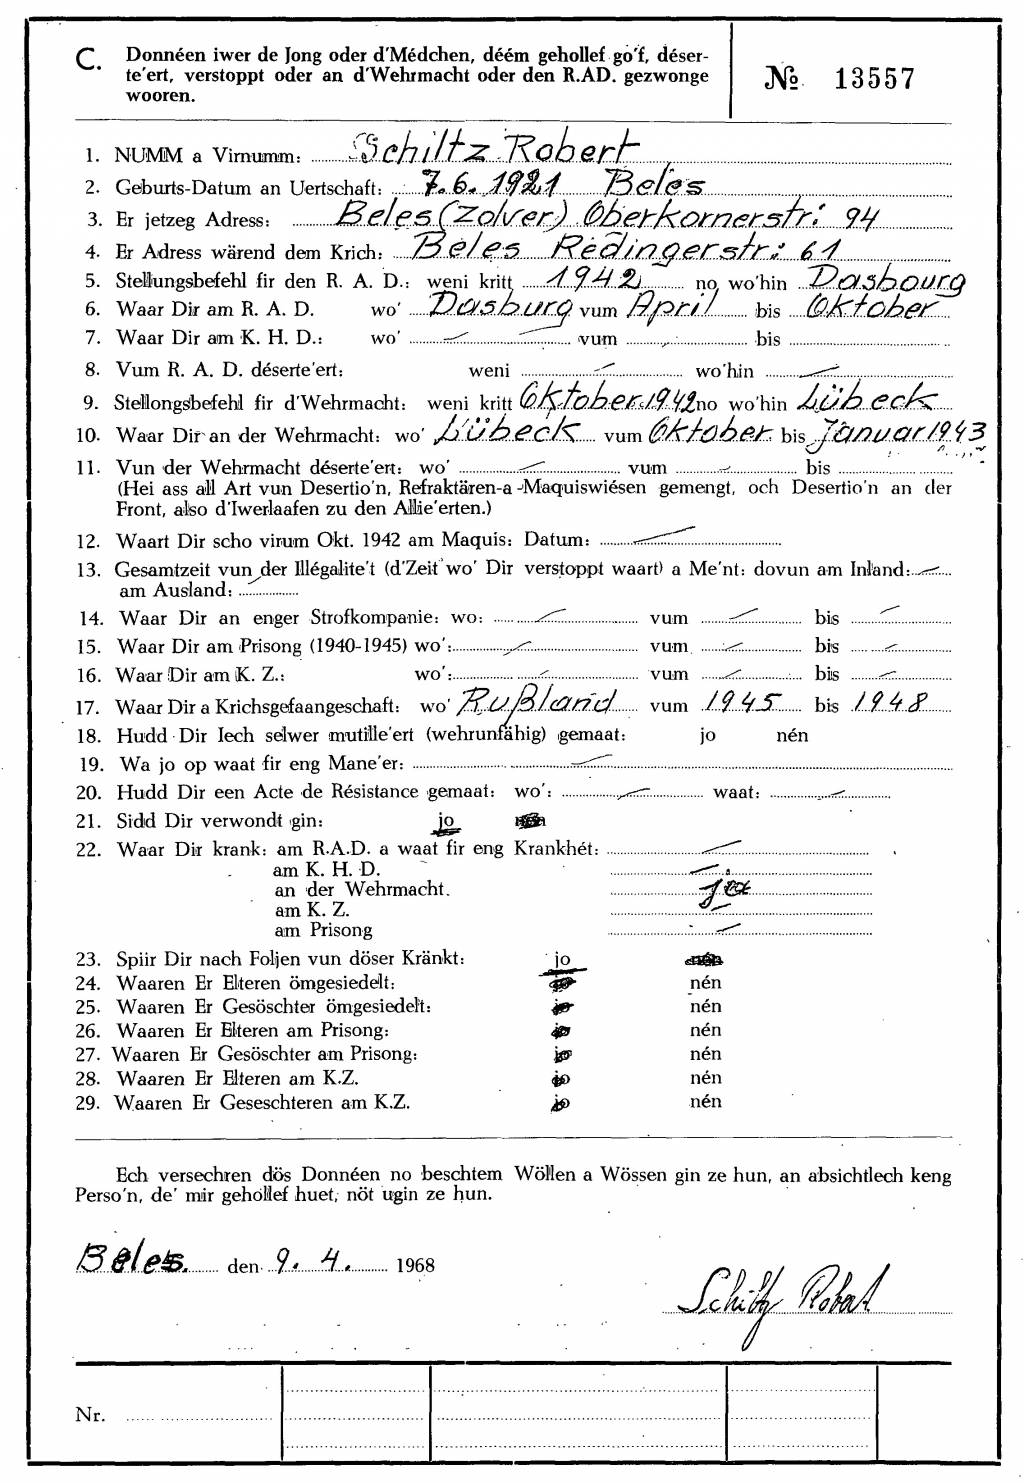 C. Donnéen iwer de Jong oder d'Médchen, déém gehollef go'f, déser-
te'ert, verstoppt oder an d'Wehrmacht oder den R.AD. gezwonge
wooren.
№ 13557
1. NUMM a Virnumm: Schiltz Robert
2. Geburts-Datum an Uertschaft: 7.6.1921 Beles
3. Er jetzeg Adress: Beles (Zolver) Oberkornerstr: 94
4. Er Adress wärend dem Krich: Beles Rédingerstr: 61
5. Stellungsbefehl fir den R. A. D.: weni kritt 1942 no wo'hin Dasbourg
6. Waar Dir am R. A. D. wo' Dasburg vum April bis Oktober
7. Waar Dir am K. H. D.: wo' — vum — bis
8. Vum R. A. D. déserte'ert: weni — wo'hin —
9. Stellongsbefehl fir d'Wehrmacht: weni kritt Oktober 1942 no wo'hin Lübeck
10. Waar Dir an der Wehrmacht: wo' Lübeck vum Oktober bis Januar 1943
11. Vun der Wehrmacht déserte'ert: wo' — vum — bis
(Hei ass all Art vun Desertio'n, Refraktären-a -Maquiswiésen gemengt, och Desertio'n an der
Front, also d'Iwerlaafen zu den Allie'erten.)
12. Waart Dir scho virum Okt. 1942 am Maquis: Datum: —
13. Gesamtzeit vun der Illégalite't (d'Zeit wo' Dir verstoppt waart) a Me'nt: dovun am Inland: —
am Ausland: —
14. Waar Dir an enger Strofkompanie: wo: — vum — bis —
15. Waar Dir am Prisong (1940-1945) wo': — vum — bis —
16. Waar Dir am K. Z.: wo': — vum — bis —
17. Waar Dir a Krichsgefaangeschaft: wo' Rußland vum 1945 bis 1948
18. Hudd Dir Iech selwer mutille'ert (wehrunfähig) gemaat: jo nén
19. Wa jo op waat fir eng Mane'er: —
20. Hudd Dir een Acte de Résistance gemaat: wo': — waat: —
21. Sidd Dir verwondt gin: jo nén
22. Waar Dir krank: am R.A.D. a waat fir eng Krankhét: —
am K. H. D. —
an der Wehrmacht. ja
am K. Z. —
am Prisong —
23. Spiir Dir nach Foljen vun döser Kränkt: jo nén
24. Waaren Er Elteren ömgesiedelt: jo nén
25. Waaren Er Gesöschter ömgesiedelt: jo nén
26. Waaren Er Elteren am Prisong: jo nén
27. Waaren Er Gesöschter am Prisong: jo nén
28. Waaren Er Elteren am K.Z. jo nén
29. Waaren Er Geseschteren am K.Z. jo nén
Ech versechren dös Donnéen no beschtem Wöllen a Wössen gin ze hun, an absichtlech keng
Perso'n, de' mir gehollef huet, nöt ugin ze hun.
Beles. den 9. 4. 1968
Schiltz Robert
Nr.